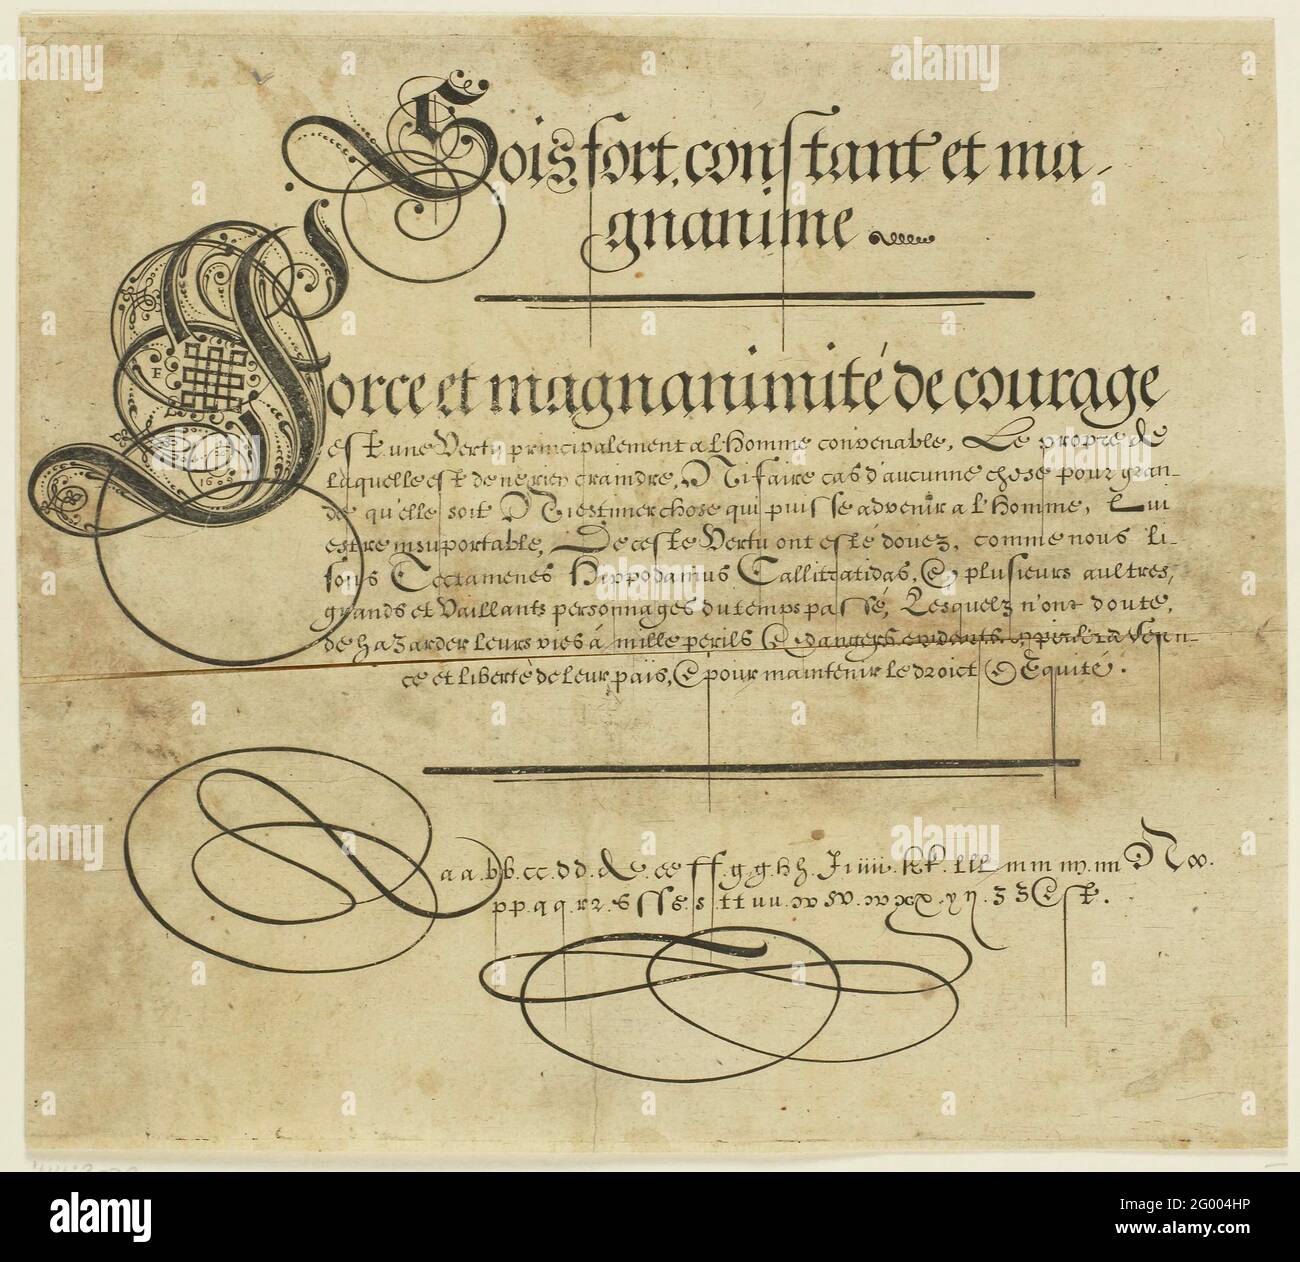 Sois fort, constant et ma-
gnanime
Force et magnanimité de courage
est une Vertu principalement a l'homme convenable, Le propre de
laquelle est de ne rien craindre, Ni faire cas d'aucunne chose pour gran-
de qu'elle soit Ni estimer chose qui puisse advenir a l'homme, Lui
estre insuportable, De ceste Vertu ont esté douez, comme nous li-
sons Tectamenes Hippodamus Callitratidas, & plusieurs aultres,
grands et Vaillants personnages du temps passé, Lesquelz n'ont doute,
de hazarder leurs vies à mille perils & dangers evidents,
ce et liberté de leur païs, & pour maintenir le droict & Equité.
E
1605
a a . b b . cc . d d . de . ee ff . g g . h h . J i iiii . k k . lll m m m . nn N oo .
p p . q q . r r . s s s s . s . t t u u . w w . w x x . y y . z z Est .
alamy
Image ID: 2G004HP
www.alamy.com